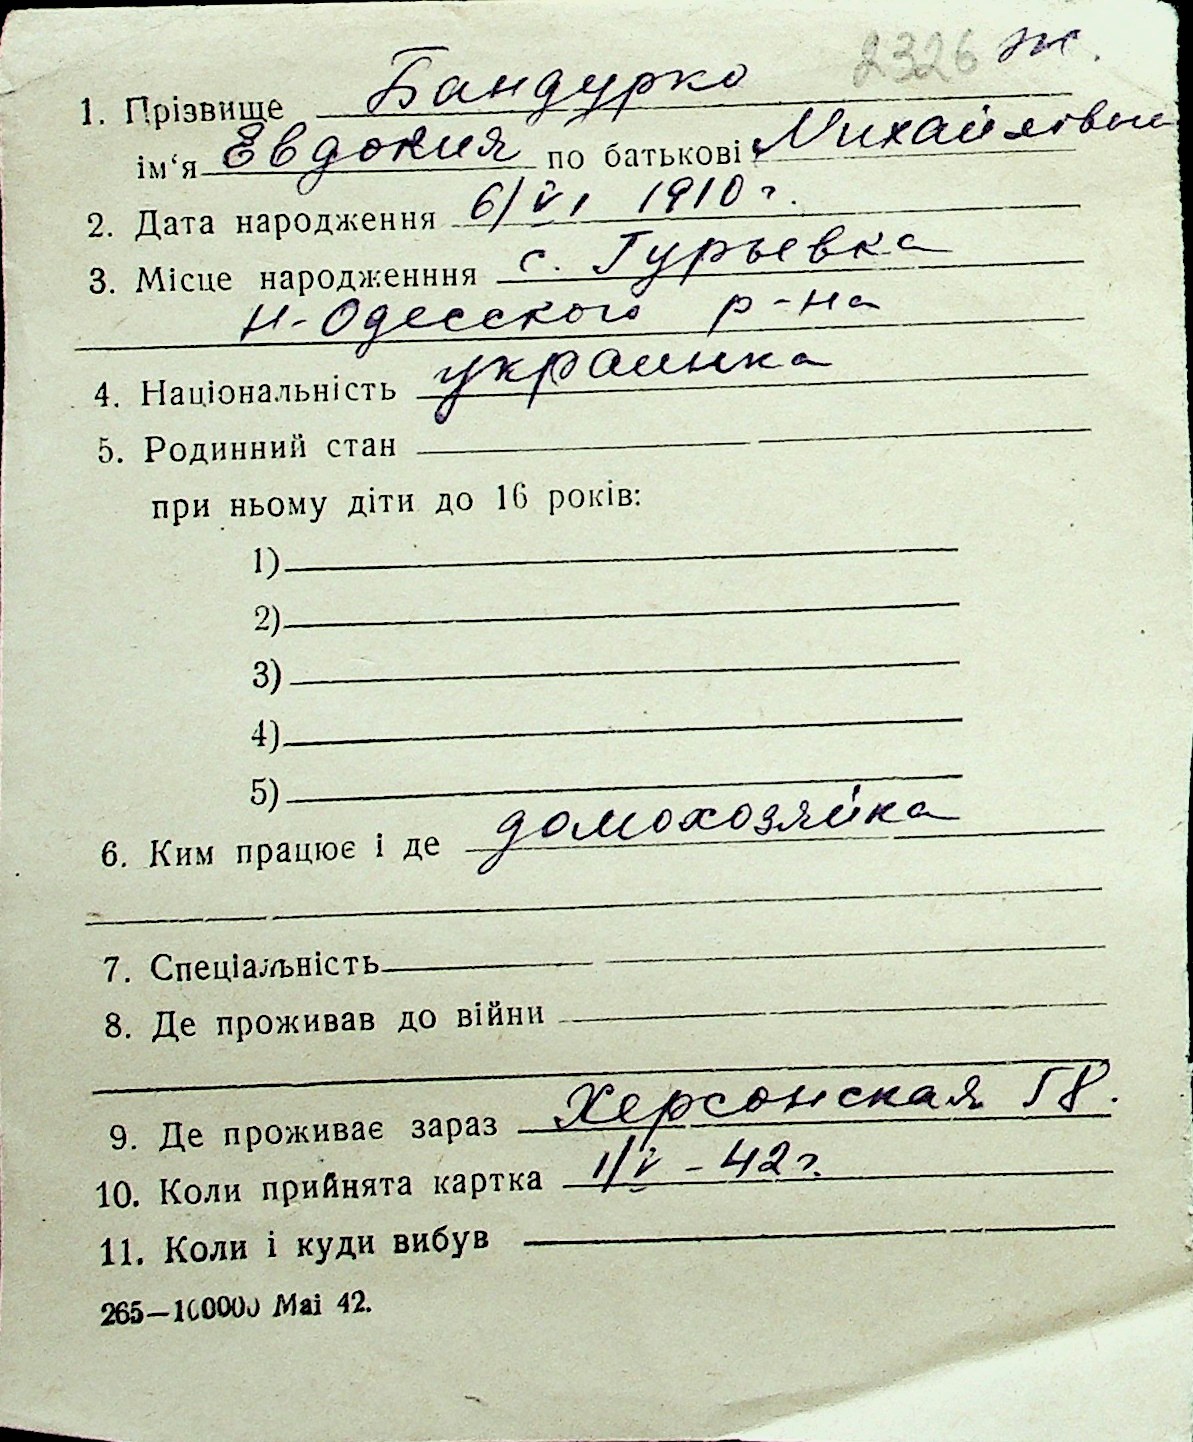 2326 ж.
1. Прізвище Бандурко
ім‘я Евдокия по батькові Михайловна
2. Дата народження 6/VI 1910 г.
3. Місце народженння с. Гурьевка
Н-Одесского р-на
4. Національність украинка
5. Родинний стан
при ньому діти до 16 років:
1)
2)
3)
4)
5)
6. Ким працює і де домохозяйка
7. Спеціальність
8. Де проживав до війни
9. Де проживає зараз Херсонская 58.
10. Коли прийнята картка 1/V - 42 г.
11. Коли і куди вибув
265—100000 Mai 42.